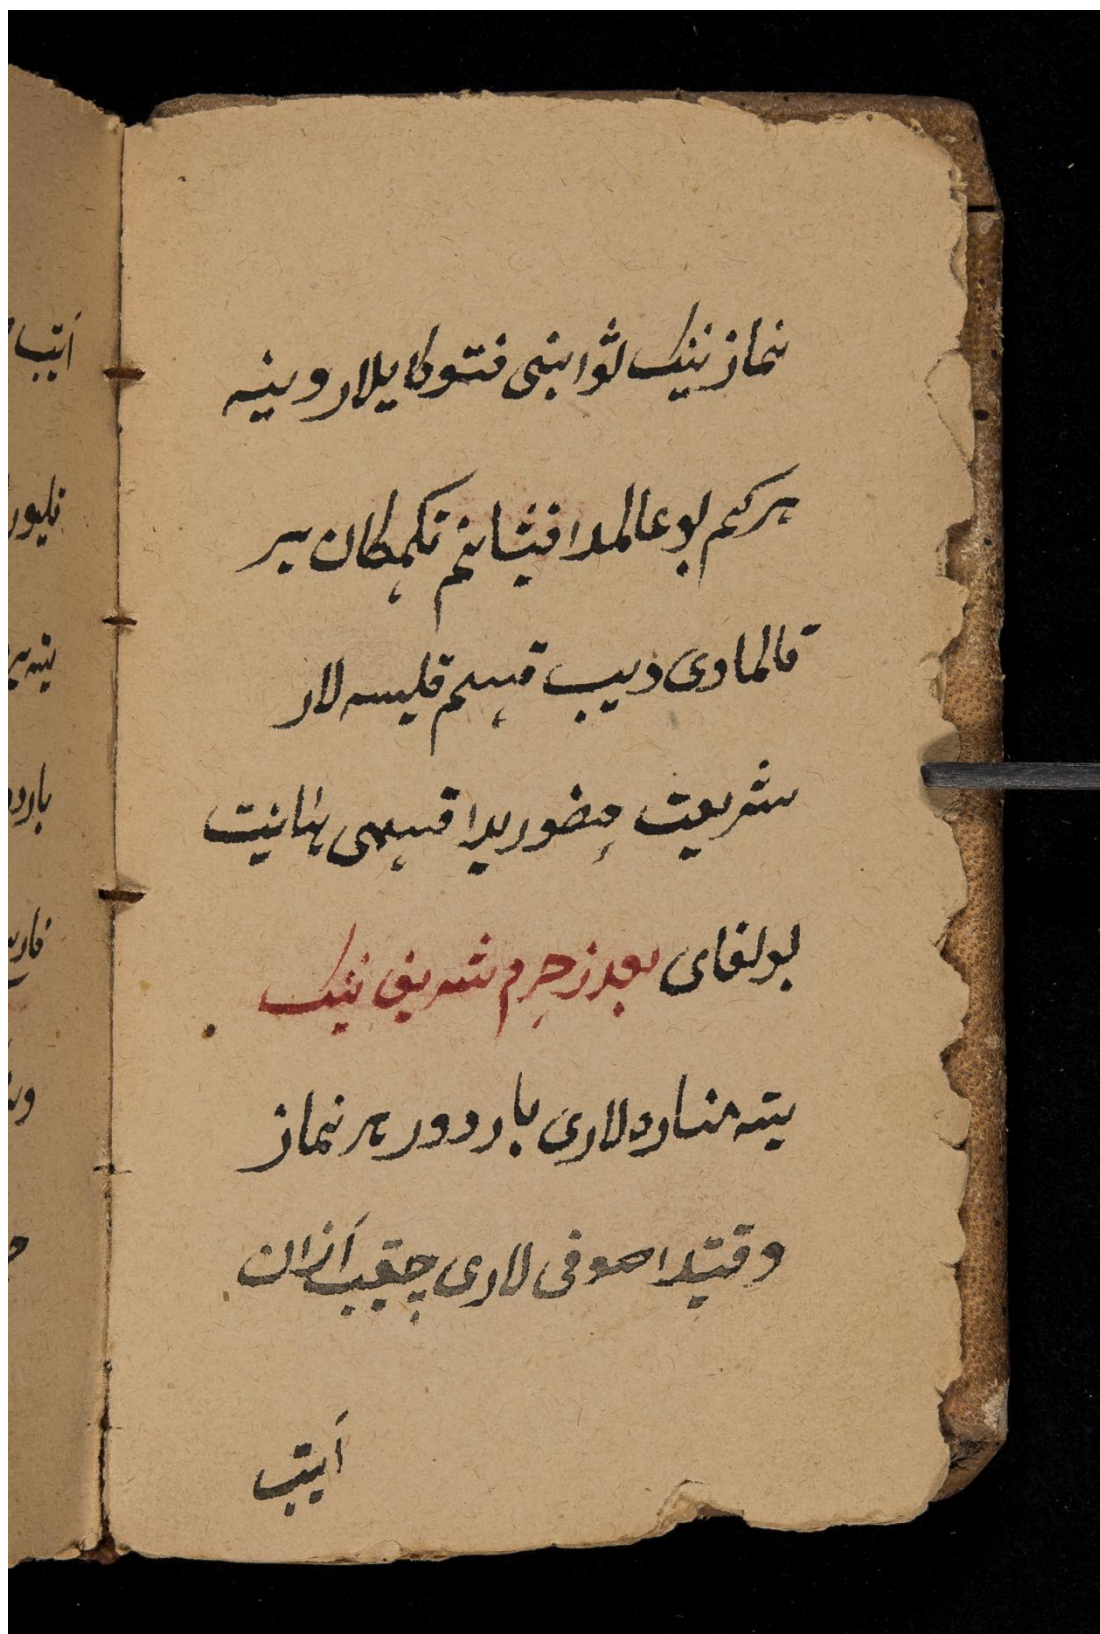 نماز نینک ثوابنی فتوکا یلار وینه
هر کم بو عالمدا قیشانم تکمکان بیر
قالمادی دیب قسم قلیسه لار
شریعت حضوریدا قسمی یانیت
بولغای بعد از حرم شریف نینک
یته مناره لاری باردور هر نماز
وقتیدا صوفی لاری چقیب اَذان
اَیتب